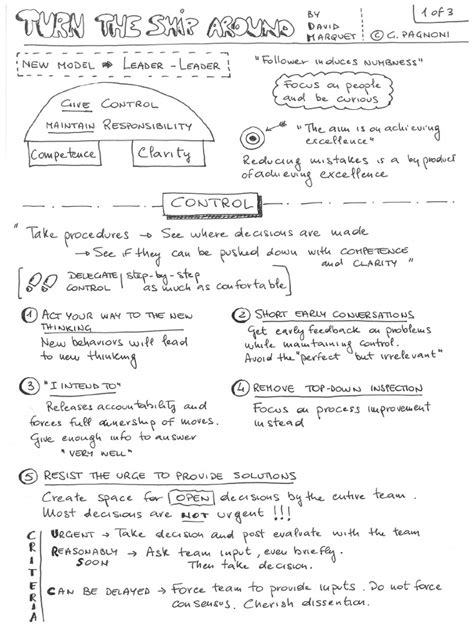 TURN THE SHIP AROUND
BY DAVID MARQUET
1 of 3
© C. PAGNONI
NEW MODEL ⇒ LEADER - LEADER
GIVE CONTROL
MAINTAIN RESPONSIBILITY
Competence
Clarity
"Follower induces NUMBNESS"
Focus on people
and be curious
"The aim is on achieving
excellence"
Reducing mistakes is a by product
of achieving excellence
CONTROL
" Take procedures → See where decisions are made
→ See if they can be pushed down with COMPETENCE
and CLARITY "
DELEGATE | step-by-step
CONTROL | as much as confortable
1 ACT YOUR WAY TO THE NEW
THINKING
New behaviors will lead
to new thinking
2 SHORT EARLY CONVERSATIONS
Get early feedback on problems
while maintaining control.
Avoid the "perfect but irrelevant"
3 "I INTEND TO"
Releases accountability and
forces full ownership of moves.
Give enough info to answer
"VERY WELL"
4 REMOVE TOP-DOWN INSPECTION
Focus on process improvement
instead
5 RESIST THE URGE TO PROVIDE SOLUTIONS
Create space for OPEN decisions by the entire team.
Most decisions are NOT urgent !!!
CRITERIA
URGENT → Take decision and post evaluate with the team
REASONABLY SOON → Ask team input, even briefly.
Then take decision.
CAN BE DELAYED → Force team to provide inputs. Do not force
consensus. Cherish dissention.